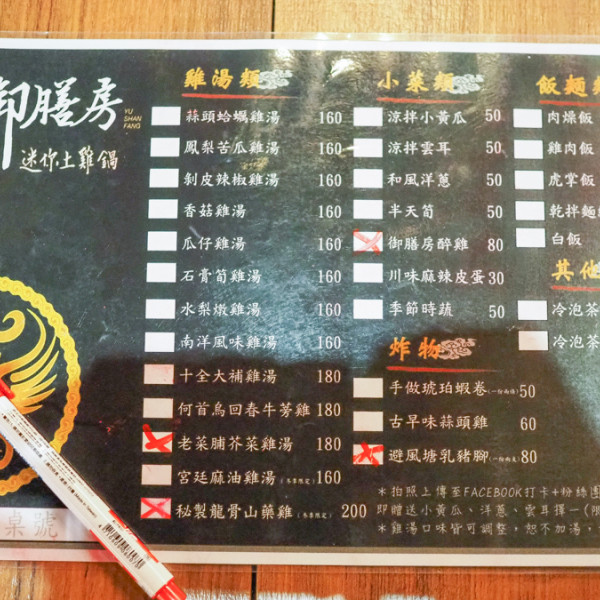 御膳房
YU SHAN FANG
迷你土雞鍋
雞湯類
蒜頭蛤蠣雞湯 160
鳳梨苦瓜雞湯 160
剝皮辣椒雞湯 160
香菇雞湯 160
瓜仔雞湯 160
石膏筍雞湯 160
水梨燉雞湯 160
南洋風味雞湯 160
十全大補雞湯 180
何首烏回春牛蒡雞 180
老菜脯芥菜雞湯 180
宮廷麻油雞湯(冬季限定) 160
秘製龍骨山藥雞(冬季限定) 200
小菜類
涼拌小黃瓜 50
涼拌雲耳 50
和風洋蔥 50
半天筍 50
御膳房醉雞 80
川味麻辣皮蛋 30
季節時蔬 50
炸物
手做琥珀蝦卷(一份兩條) 50
古早味蒜頭雞 60
避風塘乳豬腳 80
飯麵類
肉燥飯
雞肉飯
虎掌飯
乾拌麵
白飯
其他
冷泡茶
冷泡茶
*拍照上傳至FACEBOOK打卡+粉絲團
即贈送小黃瓜、洋蔥、雲耳擇一(限
*雞湯口味皆可調整,恕不加湯,
桌號